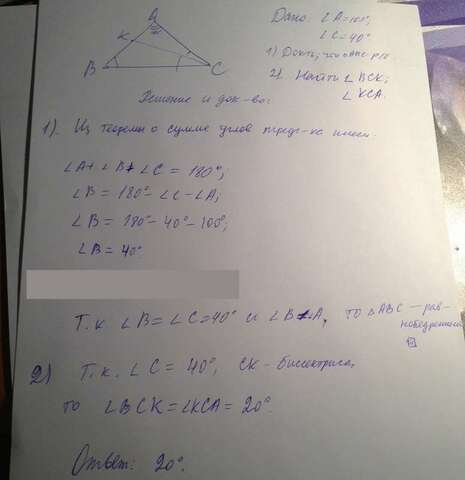 A
К
B
C
Дано: ∠A=100°,
∠C=40°
1) Док-ть, что ABC-р/б.
2). Найти ∠BCK;
∠KCA.
Решение и док-во:
1). Из теоремы о сумме углов имеем:
∠A+ ∠B+ ∠C = 180°;
∠B = 180°-∠C-∠A;
∠B = 180°-40°-100°;
∠B = 40°
Т.к. ∠B=∠C=40° и то △ABC – рав-
нобедренный
2) Т.к. ∠C = 40°, CK - биссектриса,
то ∠BCK=∠KCA = 20°.
Ответ: 20°.